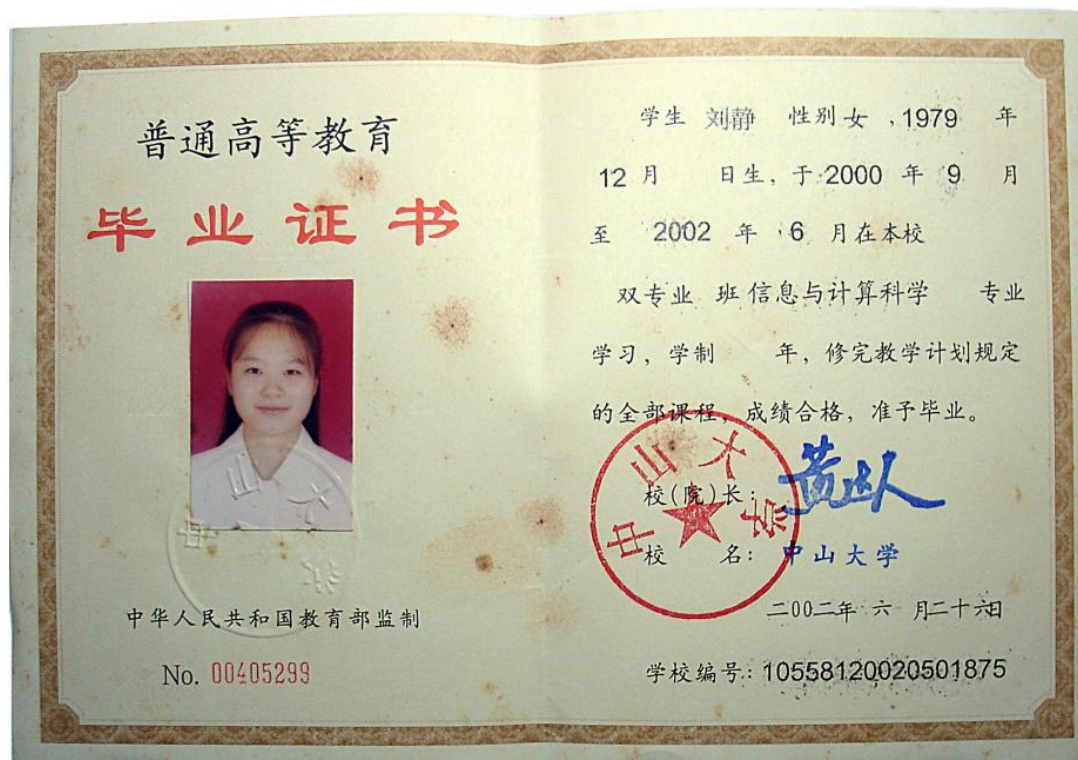 普通高等教育
毕业证书
中华人民共和国教育部监制
No. 00405299
学生 刘静 性别 女 ,1979 年
12 月 日生, 于 2000 年 9 月
至 2002 年 6 月在本校
双专业 班 信息与计算科学 专业
学习, 学制 年, 修完教学计划规定
的全部课程, 成绩合格, 准予毕业。
中山大学
校(院)长: 黄达人
校 名: 中山大学
二00二年 六 月二十六日
学校编号: 10558120020501875